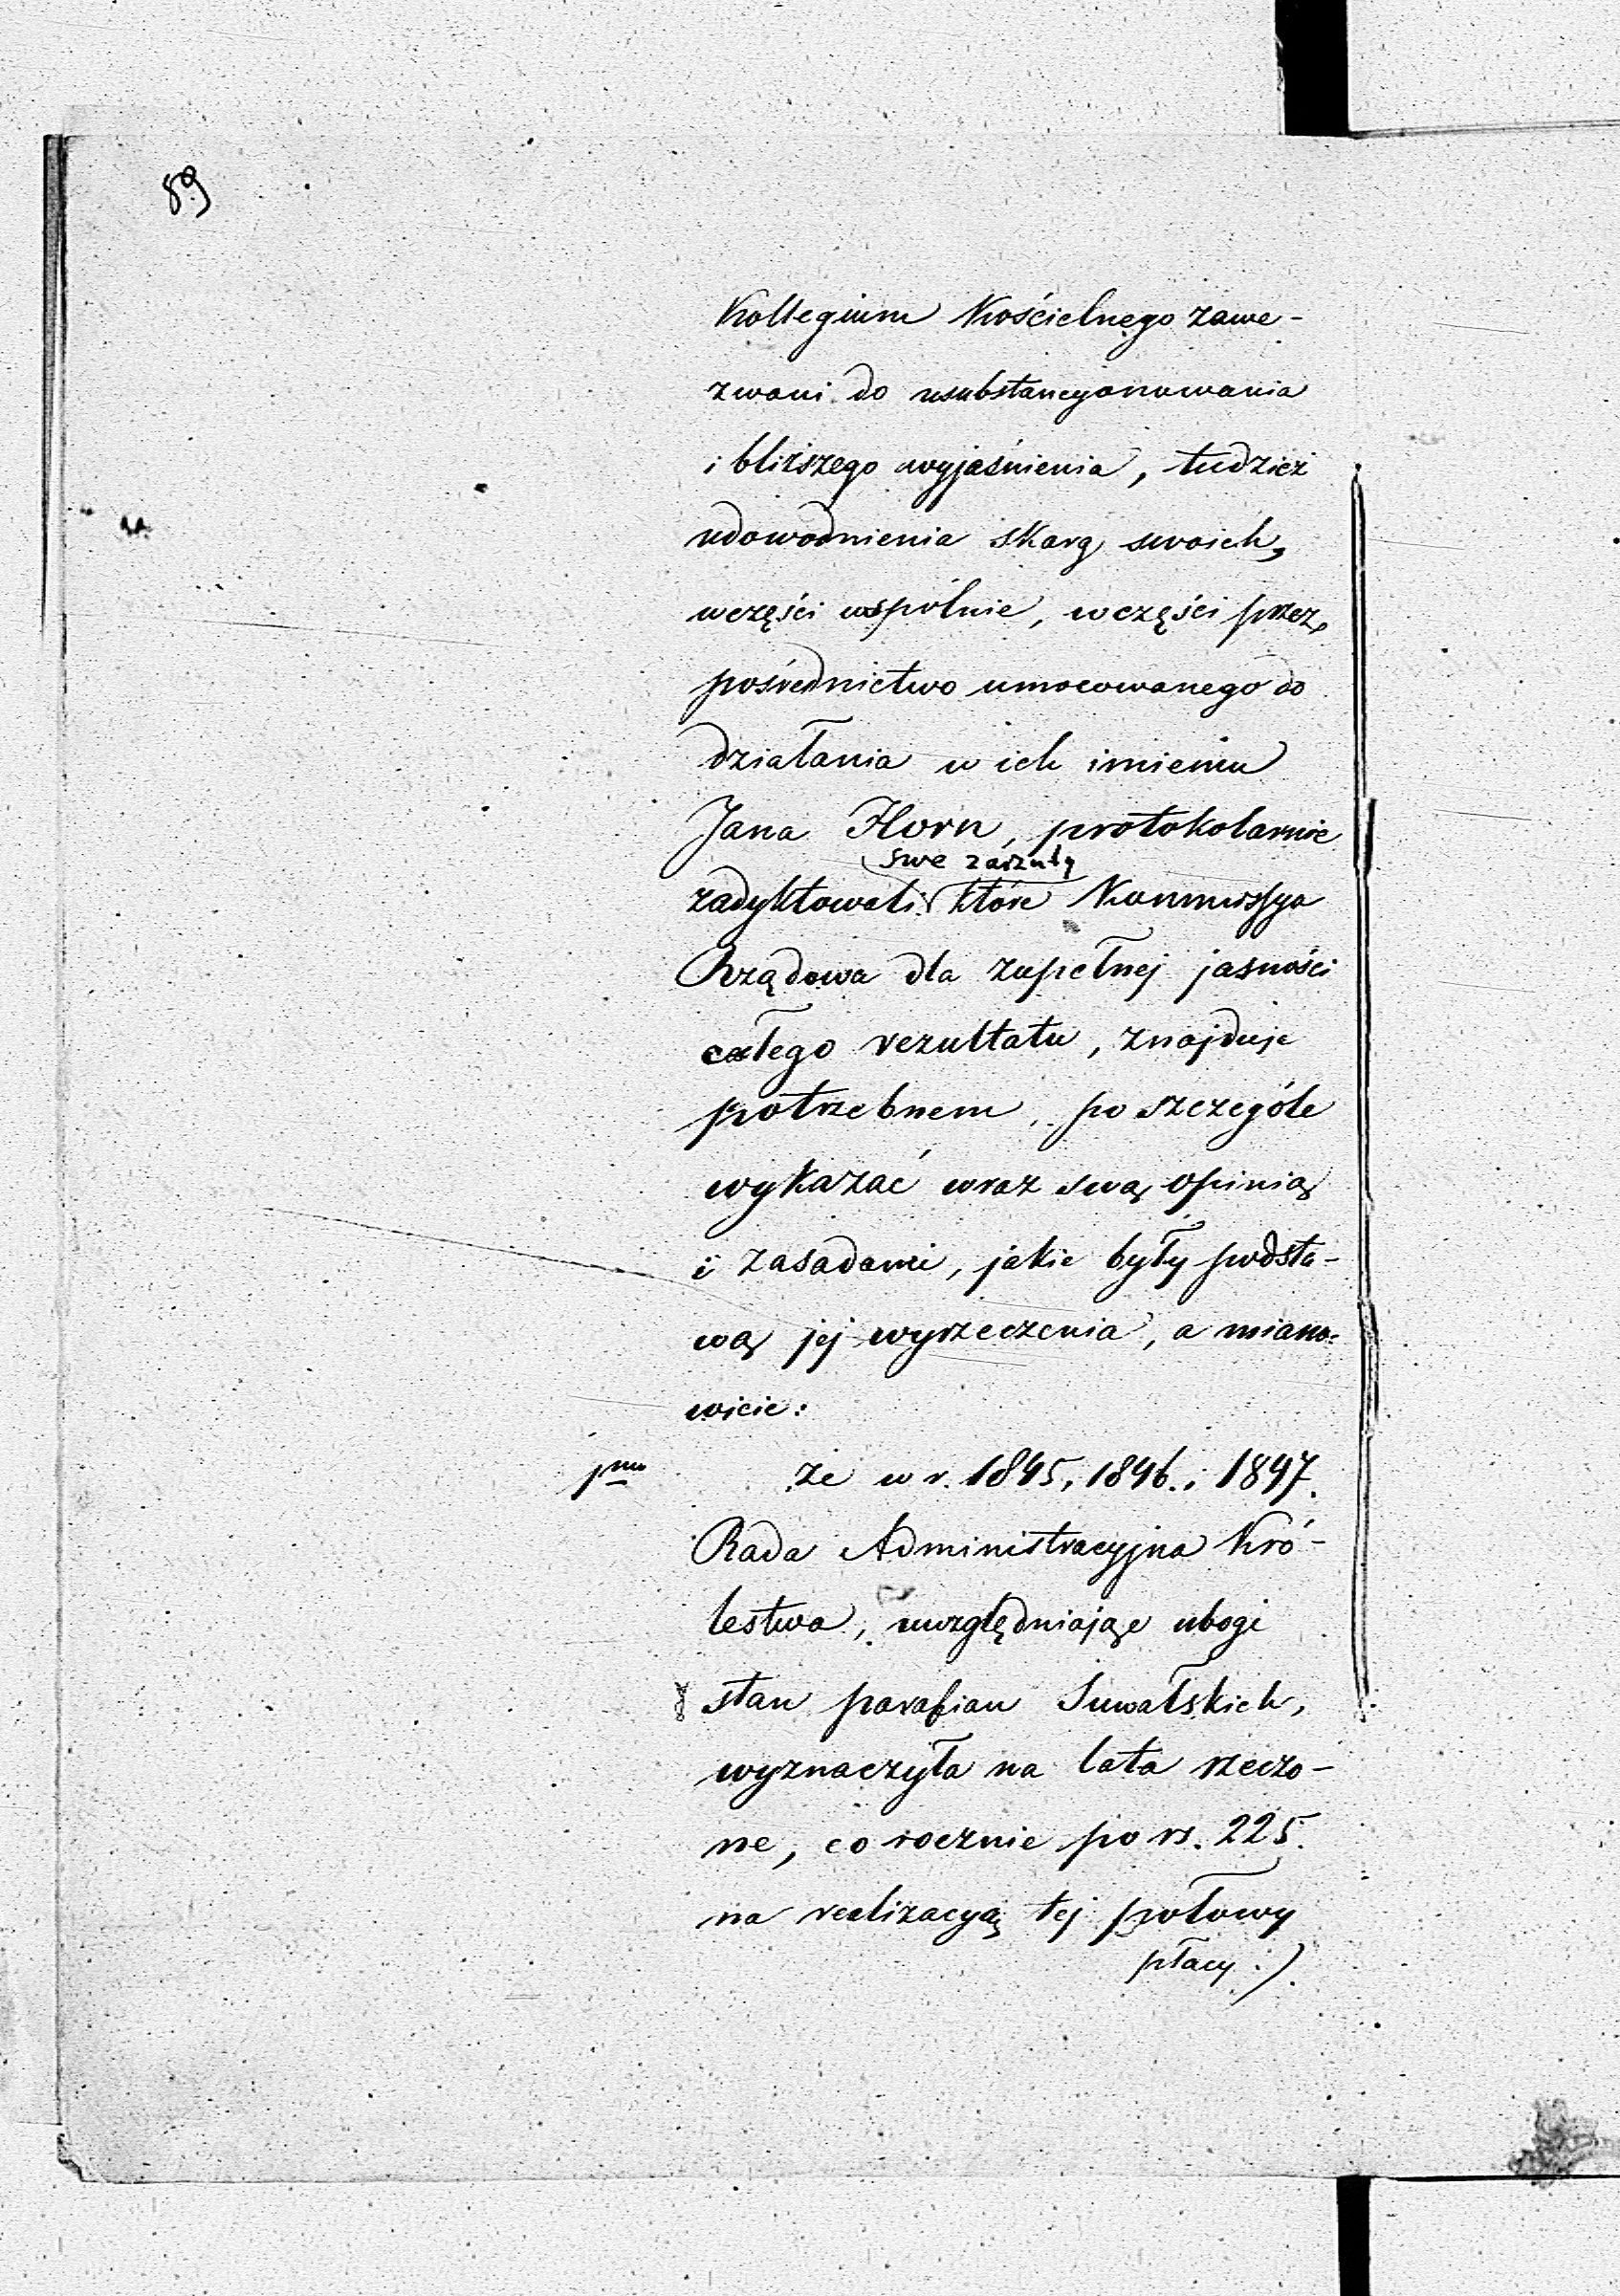 89
Kollegium Kościelnego zawe-
zwani do usubstancyonowania
i bliższego wyjaśnienia, tudzież
udowodnienia skarg swoich,
wczęści wspólnie, wczęści przez
pośrednictwo umocowanego do
działania w ich imieniu
Jana Horn, protokolarnie
swe zarzuty
zadyktowali, które Kommissya
Rządowa dla zupełnej jasności
całego rezultatu, znajduje
potrzebnem, po szczególe
wykazać wraz swą opinią
i zasadami, jakie były podsta-
wą jej wyrzeczenia, a miano-
wicie:
1mo że w r. 1845, 1846. i 1847.
Rada Administracyjna Kró-
lestwa, uwzględniając ubogi
stan parafian Suwałskich,
wyznaczyła na lata rzeczo-
ne, co rocznie po rs. 225.
na realizacyą tej połowy
płacy